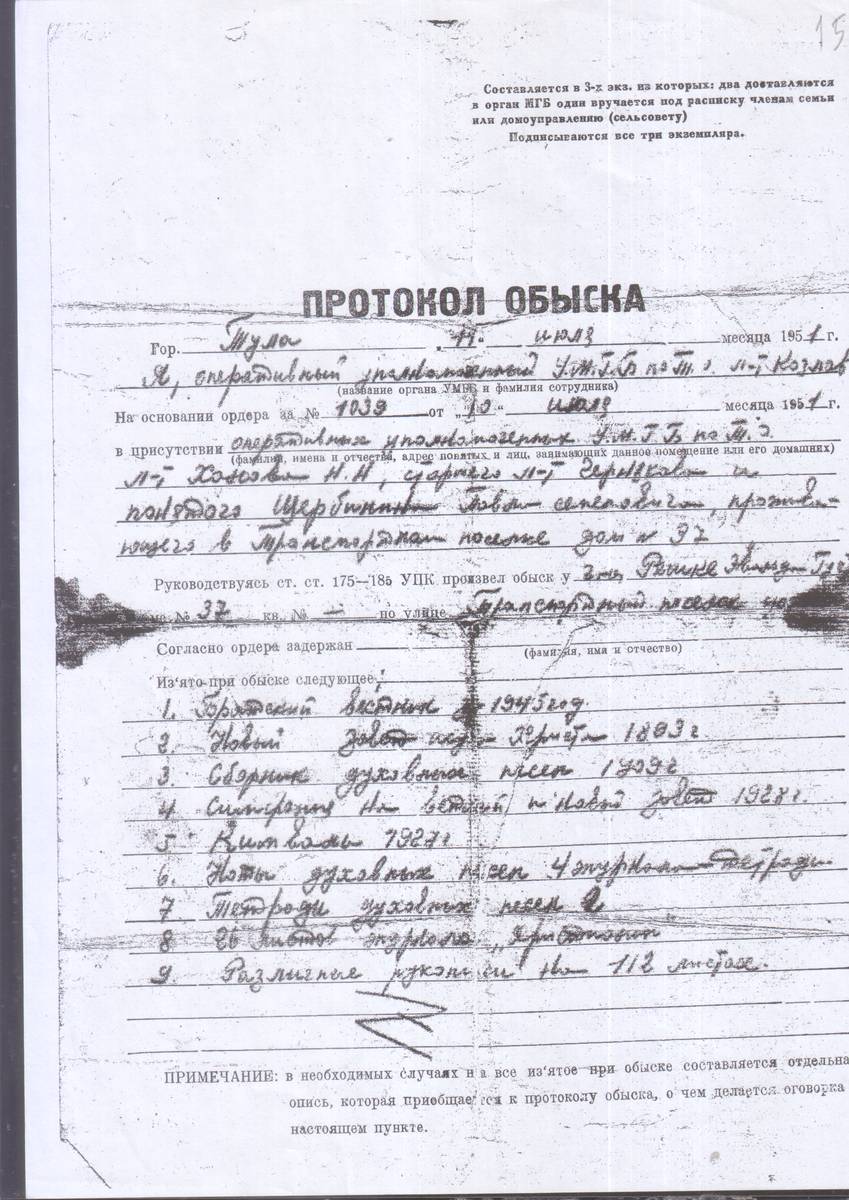 15
Составляется в 3-х экз. из которых: два доставляются
в орган МГБ один вручается под расписку членам семьи
или домоуправлению (сельсовету)
Подписываются все три экземпляра.
ПРОТОКОЛ ОБЫСКА
Гор. Тула „11“ июля месяца 1951 г.
Я, оперативный уполномоченный У.М.Г.Б по Т.О. л-т Козлов
(название органа УМГБ и фамилия сотрудника)
На основании ордера за № 1039 от „10“ июля месяца 1951 г.
в присутствии оперативных уполномоченных У.М.Г.Б по Т.О.
(фамилии, имена и отчества, адрес понятых и лиц, занимающих данное помещение или его домашних)
л-т Н.Н, старшего л-т и
понятого Щербинина семеновича, прожива-
ющего в Транспортном поселке дом № 37
Руководствуясь ст. ст. 175—185 УПК произвел обыск у
№ 37 кв. № — по улице Транспортный поселок
Согласно ордера задержан
(фамилия, имя и отчество)
Из'ято при обыске следующее:
1. Братский вестник 1945 год.
2. Новый завет Христа 1893 г.
3. Сборник духовных песен 1909 г
4 симфония на ветхий и новый завет 1928 г.
5 Кимвалы 1927 г
6. Ноты духовных песен 4 журнала тетради
7 Тетради духовных песен 2
8 26 листов журнала „Христианин“
9. Различные рукописи на 112 листах.
ПРИМЕЧАНИЕ: в необходимых случаях на все из'ятое при обыске составляется отдельна
опись, которая приобщается к протоколу обыска, о чем делается оговорка
настоящем пункте.